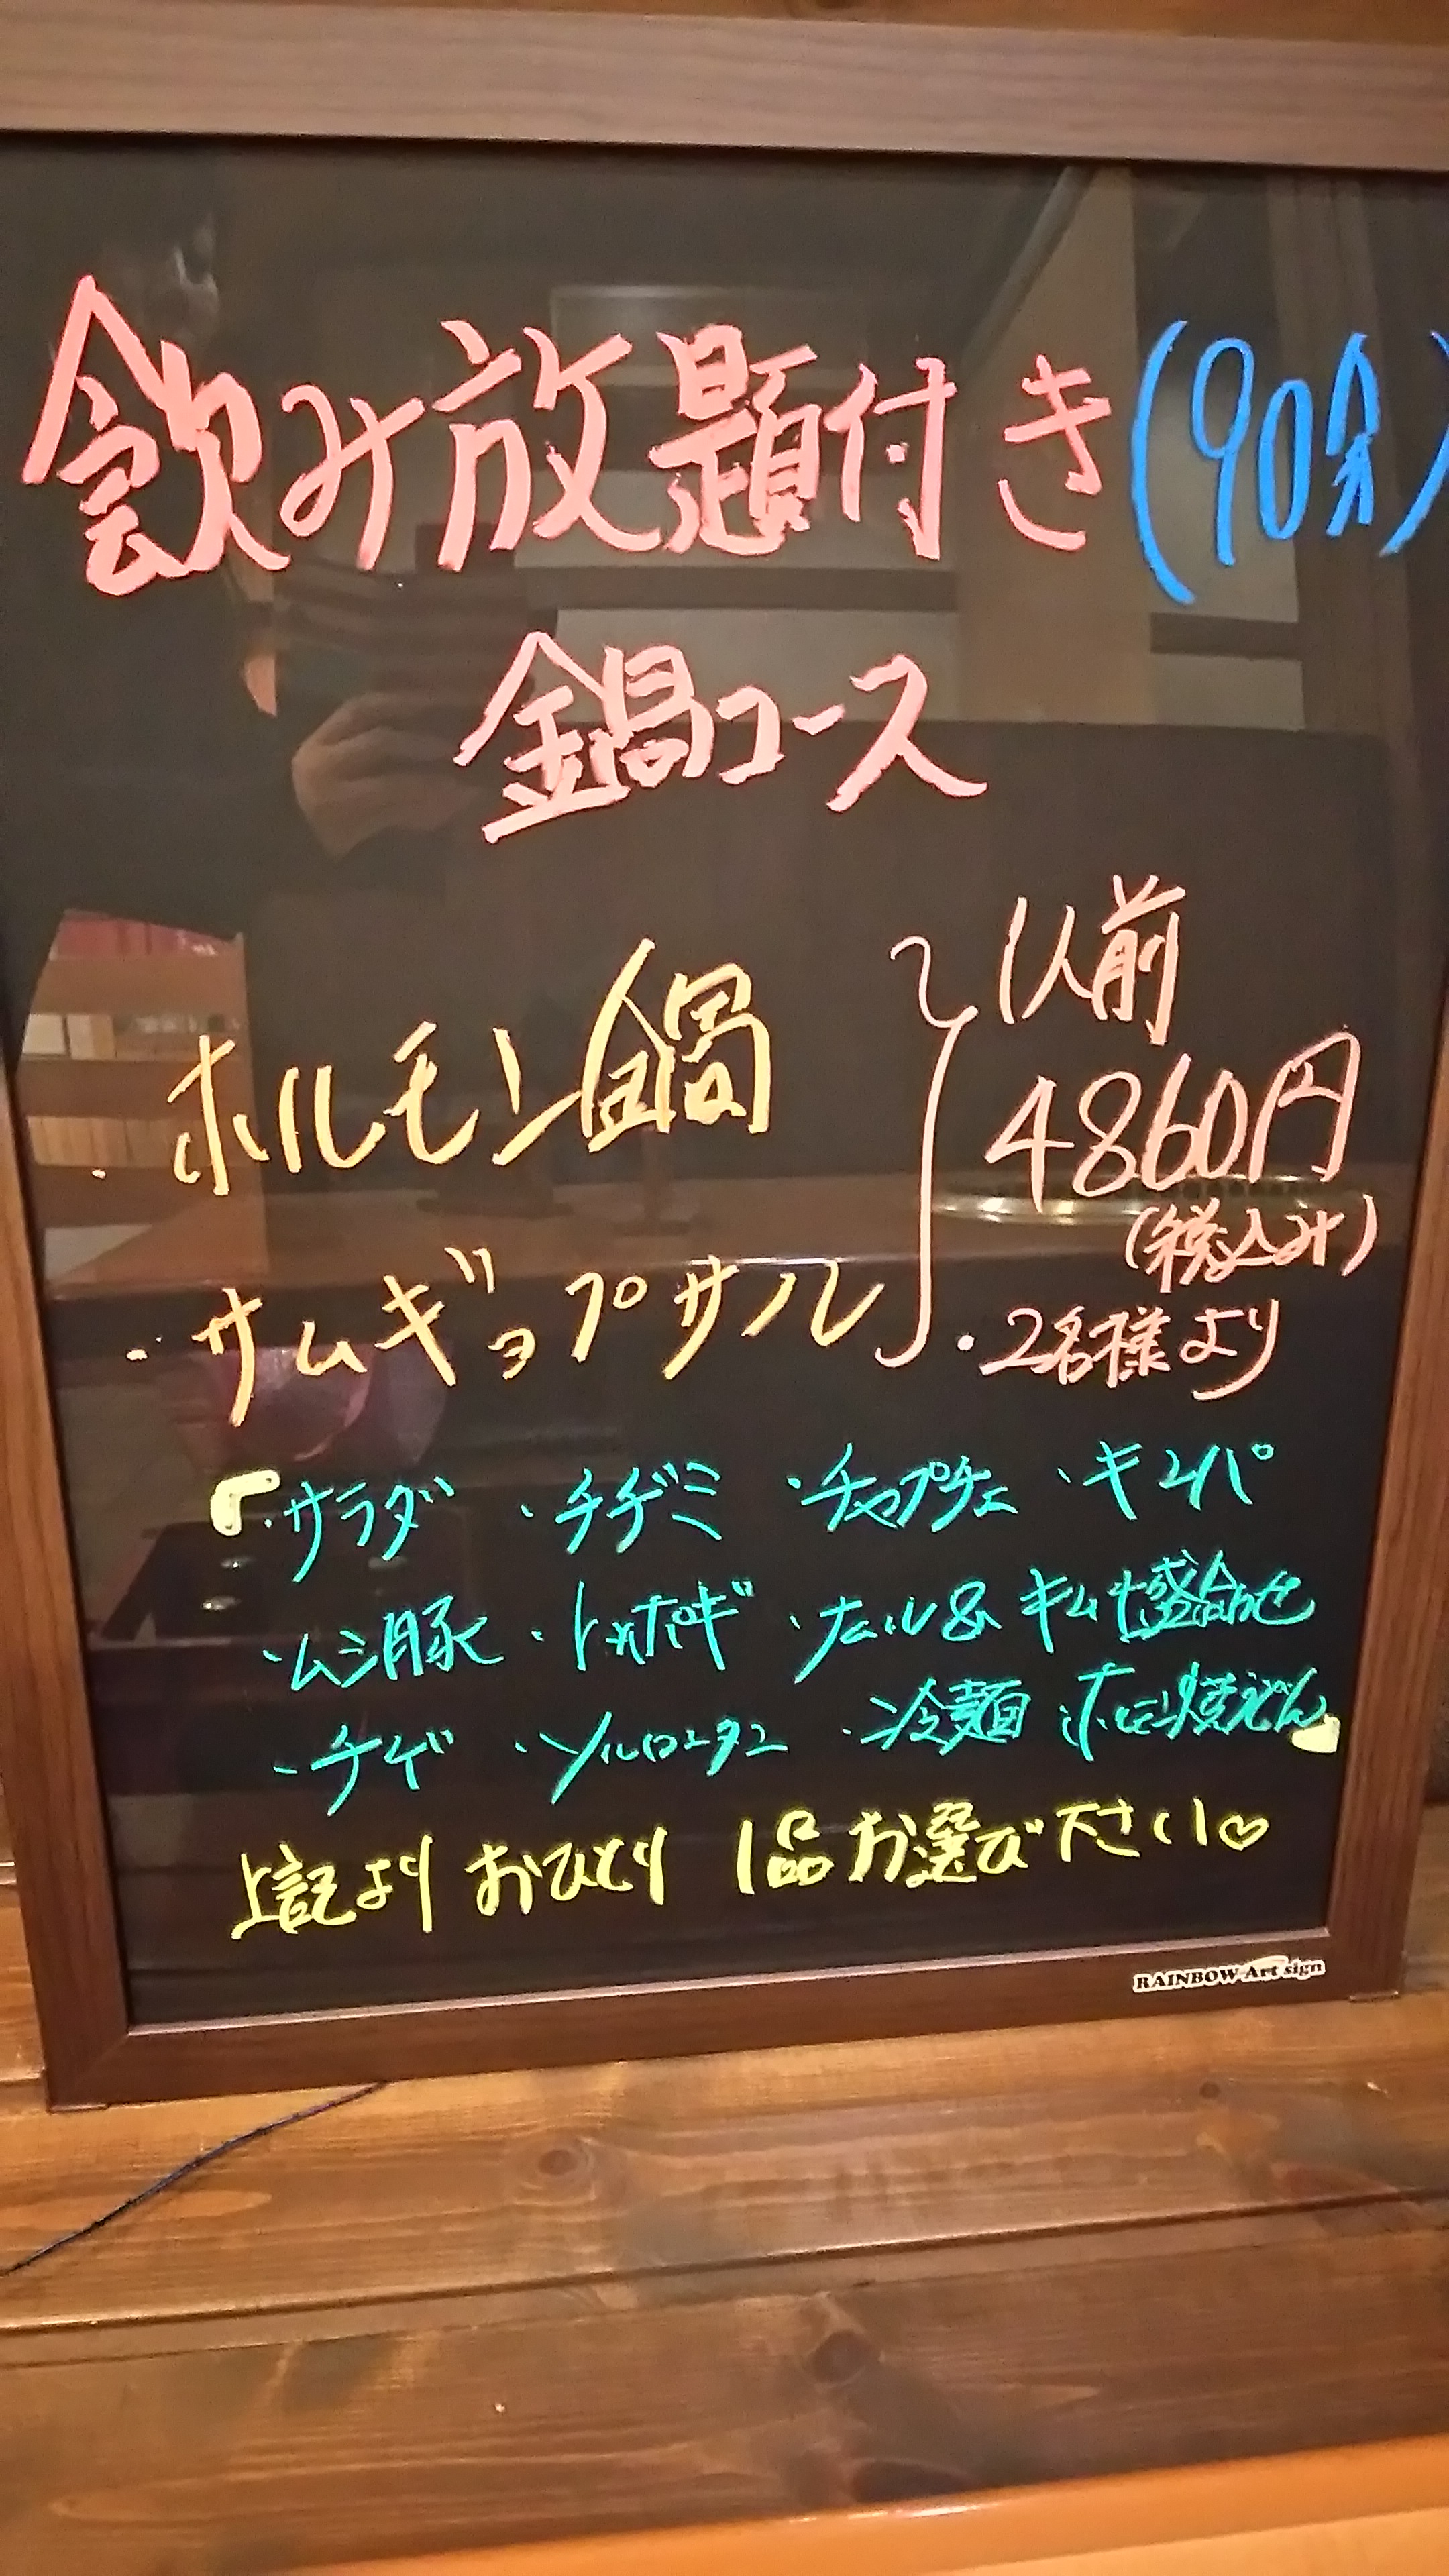 飲み放題付き(90分)
鍋コース
・ホルモン鍋
・サムギョプサル
1人前
4860円
(税込み)
・2名様より
「・サラダ ・チヂミ ・チャプチェ ・キンパ
・ムシ豚 ・トッポギ ・ナムル&キムチ盛合わせ
・チゲ ・ソルロンタン ・冷麺 ・ホルモン焼うどん」
上記より おひとり 1品お選び下さい♡
RAINBOW Art sign